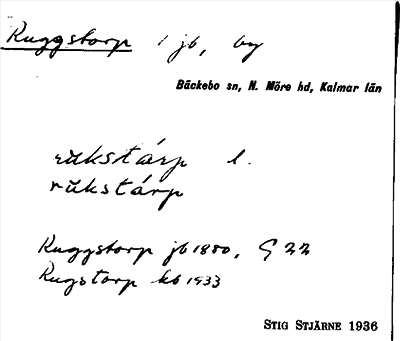 Ruggstorp 1 jb, by
Bäckebo sn, N. Möre hd, Kalmar län
rukstárp l.
rukstárp
Ruggstorp jb 1880, G 22
Rugstorp kb 1933
STIG STJÄRNE 1936